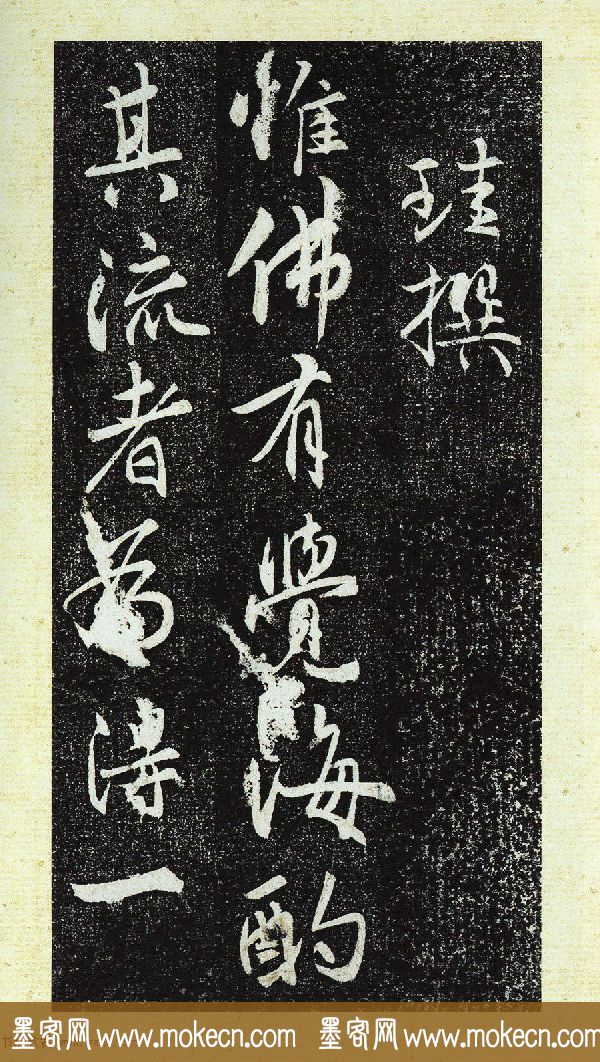 珪撰
惟佛有覺海酌
其流者得一
墨客网 www.mokecn.com 墨客网 www.mokecn.com